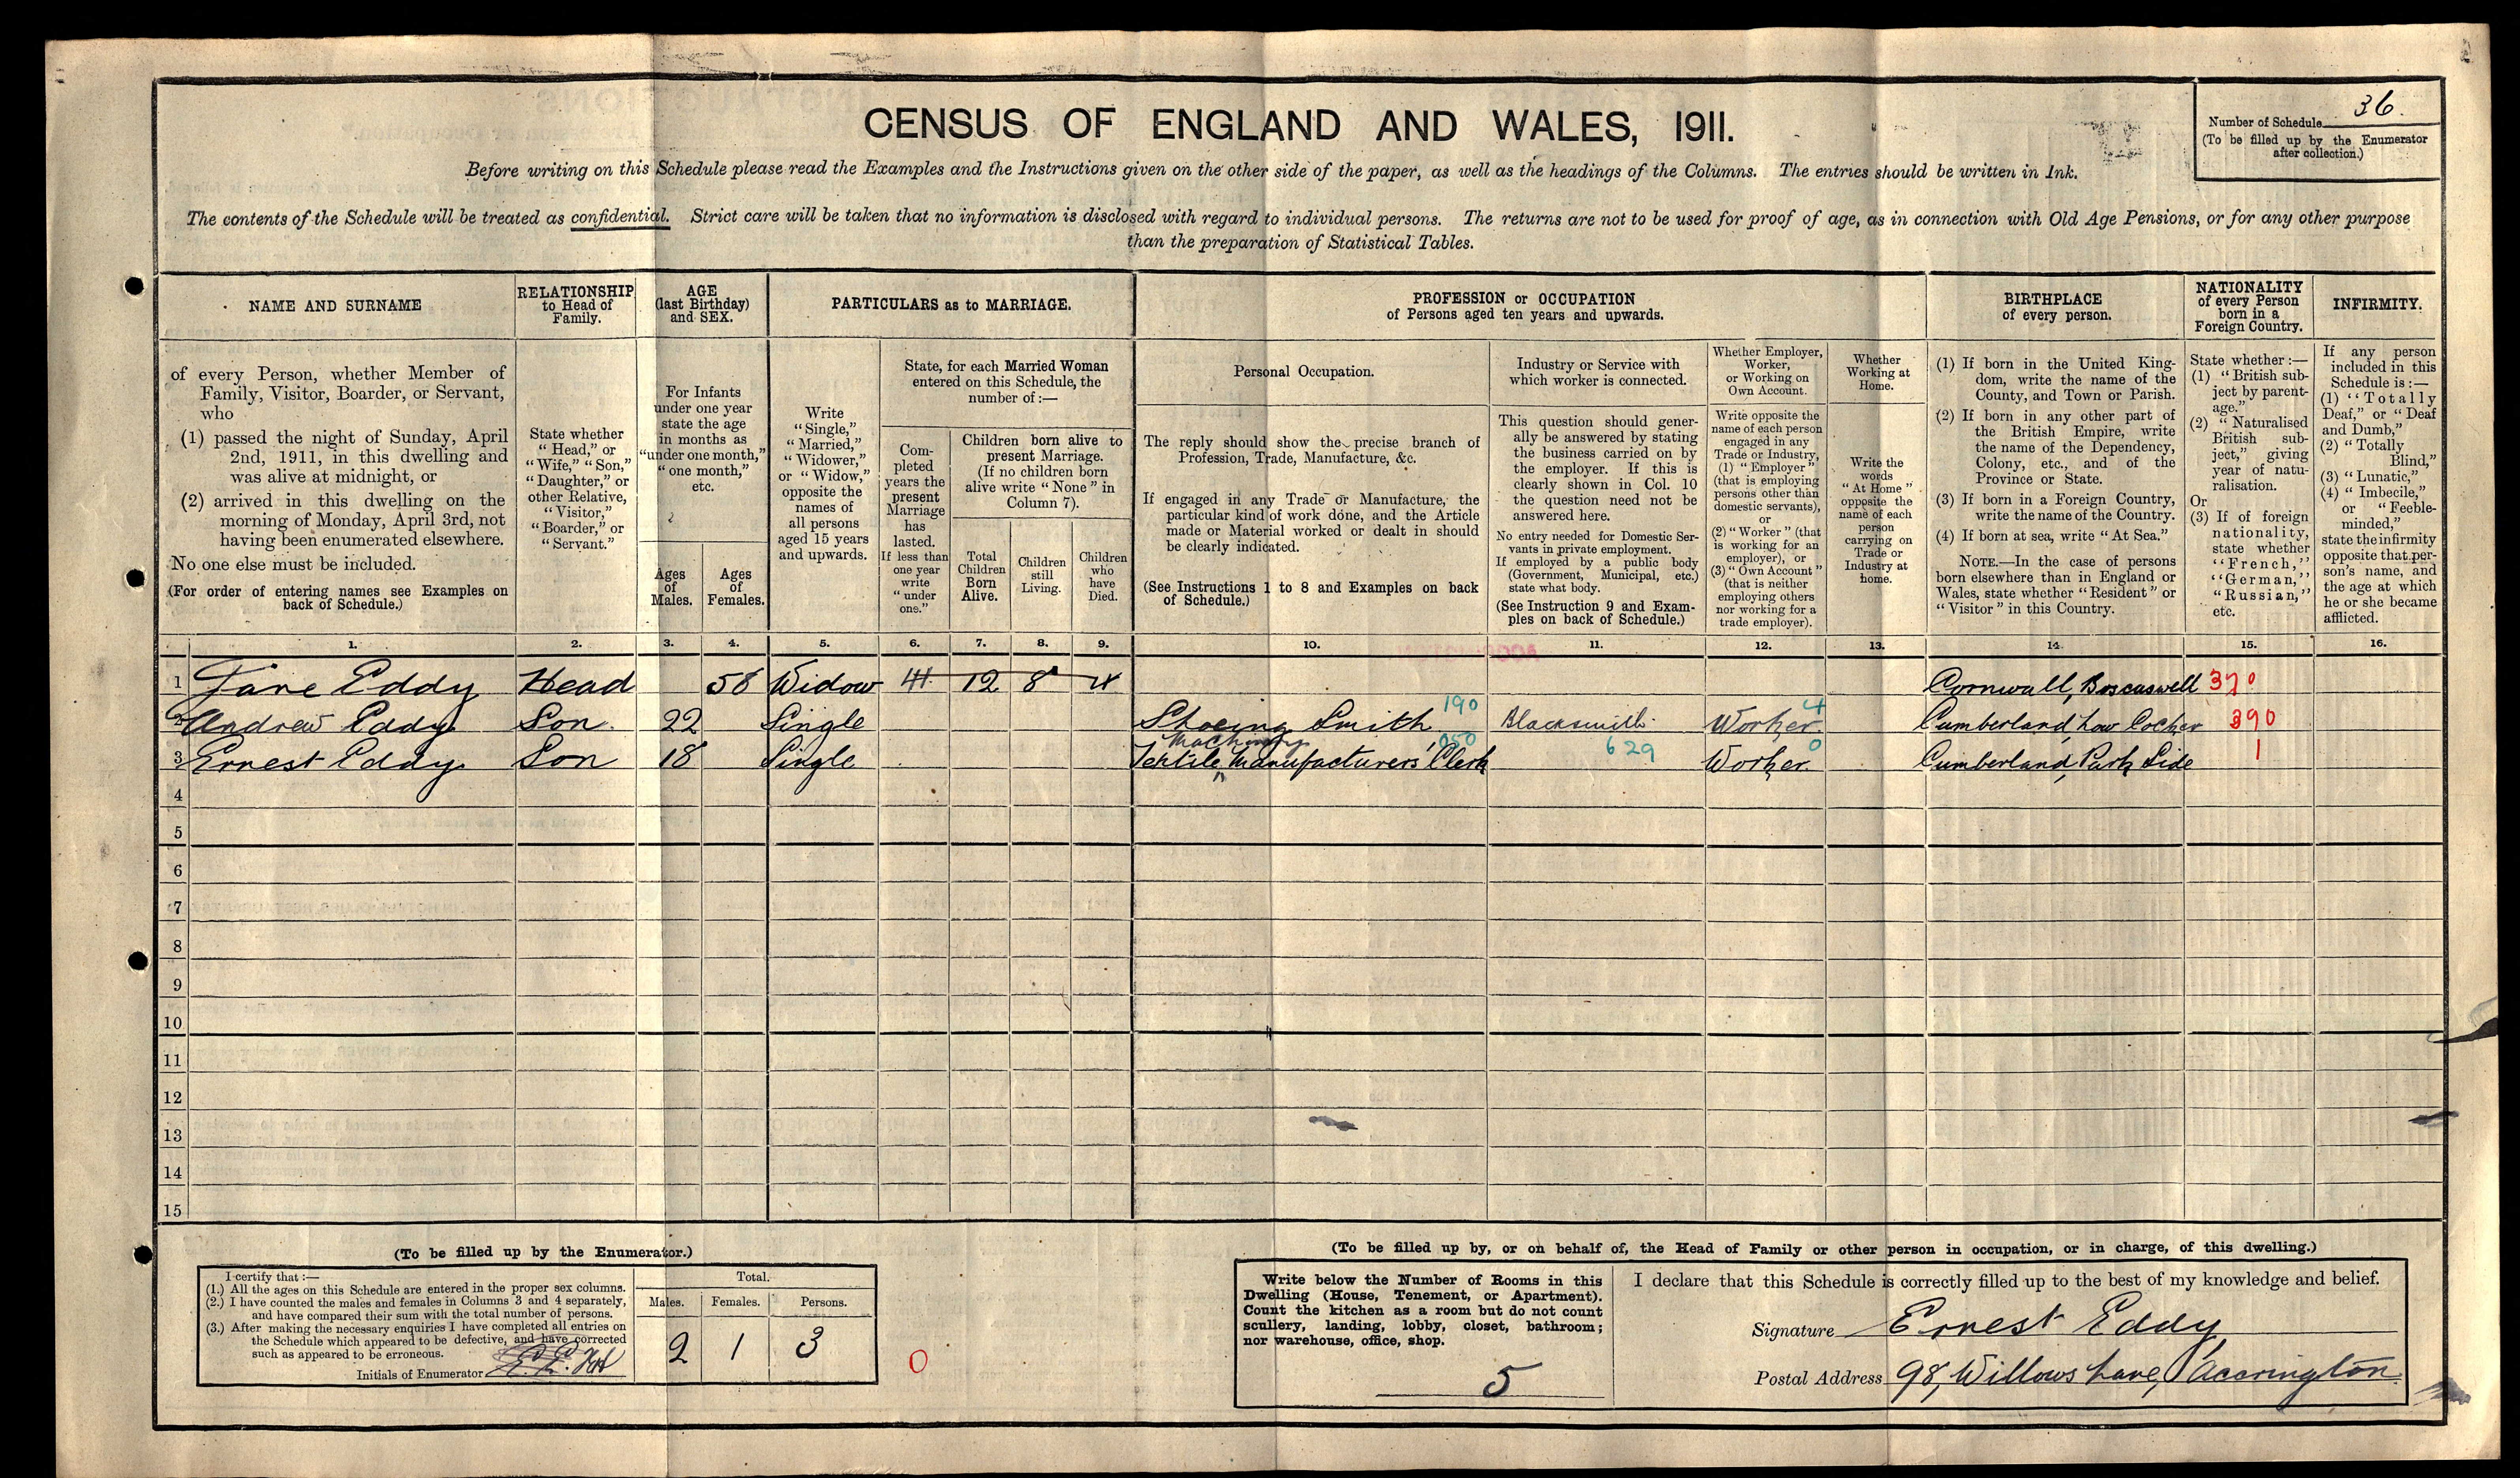 CENSUS OF ENGLAND AND WALES, 1911.
Number of Schedule 36.
(To be filled up by the Enumerator
after collection.)
Before writing on this Schedule please read the Examples and the Instructions given on the other side of the paper, as well as the headings of the Columns. The entries should be written in Ink.
The contents of the Schedule will be treated as confidential. Strict care will be taken that no information is disclosed with regard to individual persons. The returns are not to be used for proof of age, as in connection with Old Age Pensions, or for any other purpose
than the preparation of Statistical Tables.
NAME AND SURNAME
of every Person, whether Member of
Family, Visitor, Boarder, or Servant,
who
(1) passed the night of Sunday, April
2nd, 1911, in this dwelling and
was alive at midnight, or
(2) arrived in this dwelling on the
morning of Monday, April 3rd, not
having been enumerated elsewhere.
No one else must be included.
(For order of entering names see Examples on
back of Schedule.)
RELATIONSHIP
to Head of
Family.
State whether
"Head," or
"Wife," "Son,"
"Daughter," or
other Relative,
"Visitor,"
"Boarder," or
"Servant."
AGE
(last Birthday)
and SEX.
For Infants
under one year
state the age
in months as
"under one month,"
"one month,"
etc.
Ages
of
Males.
Ages
of
Females.
PARTICULARS as to MARRIAGE.
Write
"Single,"
"Married,"
"Widower,"
or "Widow,"
opposite the
names of
all persons
aged 15 years
and upwards.
State, for each Married Woman
entered on this Schedule, the
number of:—
Com-
pleted
years the
present
Marriage
has
lasted.
If less than
one year
write
"under
one."
Children born alive to
present Marriage.
(If no children born
alive write "None" in
Column 7).
Total
Children
Born
Alive.
Children
still
Living.
Children
who
have
Died.
PROFESSION or OCCUPATION
of Persons aged ten years and upwards.
Personal Occupation.
The reply should show the precise branch of
Profession, Trade, Manufacture, &c.
If engaged in any Trade or Manufacture, the
particular kind of work done, and the Article
made or Material worked or dealt in should
be clearly indicated.
(See Instructions 1 to 8 and Examples on back
of Schedule.)
Industry or Service with
which worker is connected.
This question should gener-
ally be answered by stating
the business carried on by
the employer. If this is
clearly shown in Col. 10
the question need not be
answered here.
No entry needed for Domestic Ser-
vants in private employment.
If employed by a public body
(Government, Municipal, etc.)
state what body.
(See Instruction 9 and Exam-
ples on back of Schedule.)
Whether Employer,
Worker,
or Working on
Own Account.
Write opposite the
name of each person
engaged in any
Trade or Industry,
(1) "Employer"
(that is employing
persons other than
domestic servants),
or
(2) "Worker" (that
is working for an
employer), or
(3) "Own Account"
(that is neither
employing others
nor working for a
trade employer).
Whether
Working at
Home.
Write the
words
"At Home"
opposite the
name of each
person
carrying on
Trade or
Industry at
home.
BIRTHPLACE
of every person.
(1) If born in the United King-
dom, write the name of the
County, and Town or Parish.
(2) If born in any other part of
the British Empire, write
the name of the Dependency,
Colony, etc., and of the
Province or State.
(3) If born in a Foreign Country,
write the name of the Country.
(4) If born at sea, write "At Sea."
NOTE.—In the case of persons
born elsewhere than in England or
Wales, state whether "Resident" or
"Visitor" in this Country.
NATIONALITY
of every Person
born in a
Foreign Country.
State whether:—
(1) "British sub-
ject by parent-
age."
(2) "Naturalised
British sub-
ject," giving
year of natu-
ralisation.
Or
(3) If of foreign
nationality,
state whether
"French,"
"German,"
"Russian,"
etc.
INFIRMITY.
If any person
included in this
Schedule is:—
(1) "Totally
Deaf," or "Deaf
and Dumb,"
(2) "Totally
Blind,"
(3) "Lunatic,"
(4) "Imbecile,"
or "Feeble-
minded,"
state the infirmity
opposite that per-
son's name, and
the age at which
he or she became
afflicted.
1. 2. 3. 4. 5. 6. 7. 8. 9. 10. 11. 12. 13. 14. 15. 16.
1 Jane Eddy Head 58 Widow 41 12 8 4 Cornwall, Boscaswell 370
2 Andrew Eddy Son. 22 Single Shoeing Smith 190 Blacksmith. Worker. 4 Cumberland, Low Cocker 390
Machinery 050
3 Ernest Eddy Son 18 Single Textile Manufacturers' Clerk 629 Worker. 0 Cumberland, Park Side 1
4
5
6
7
8
9
10
11
12
13
14
15
(To be filled up by the Enumerator.)
I certify that:—
(1.) All the ages on this Schedule are entered in the proper sex columns.
(2.) I have counted the males and females in Columns 3 and 4 separately,
and have compared their sum with the total number of persons.
(3.) After making the necessary enquiries I have completed all entries on
the Schedule which appeared to be defective, and have corrected
such as appeared to be erroneous.
Initials of Enumerator
Total.
Males. Females. Persons.
2 1 3
0
(To be filled up by, or on behalf of, the Head of Family or other person in occupation, or in charge, of this dwelling.)
Write below the Number of Rooms in this
Dwelling (House, Tenement, or Apartment).
Count the kitchen as a room but do not count
scullery, landing, lobby, closet, bathroom;
nor warehouse, office, shop.
5
I declare that this Schedule is correctly filled up to the best of my knowledge and belief.
Signature Ernest Eddy
Postal Address 98, Willows Lane, Accrington.